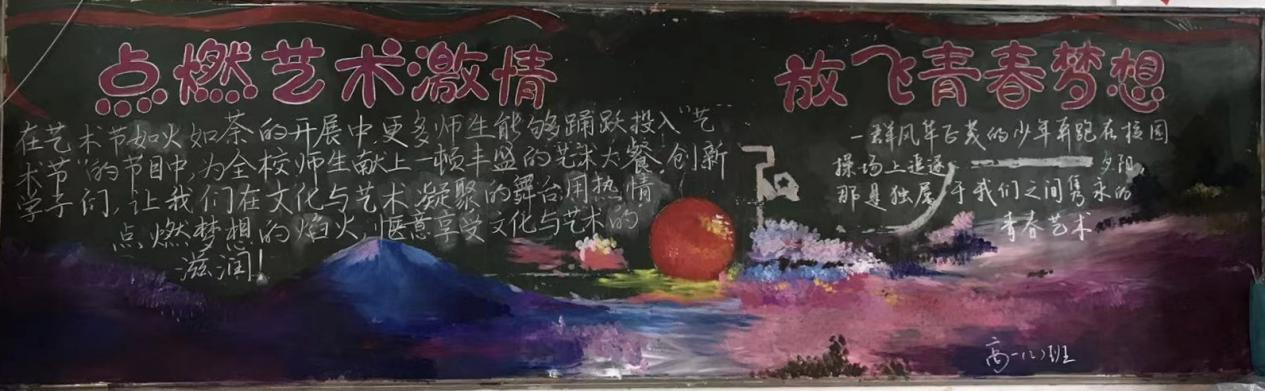 点燃艺术激情
放飞青春梦想
在艺术节如火如荼的开展中更多师生能够踊跃投入"艺
术节"的节目中,为全校师生献上一顿丰盛的艺术大餐,创新
学子们,让我们在文化与艺术凝聚的舞台用热情
点燃梦想的焰火,惬意享受文化与艺术的
滋润!
一群风华正茂的少年奔跑在校园
操场上追逐 夕阳,
那是独属于我们之间隽永的
青春艺术
高一(2)班